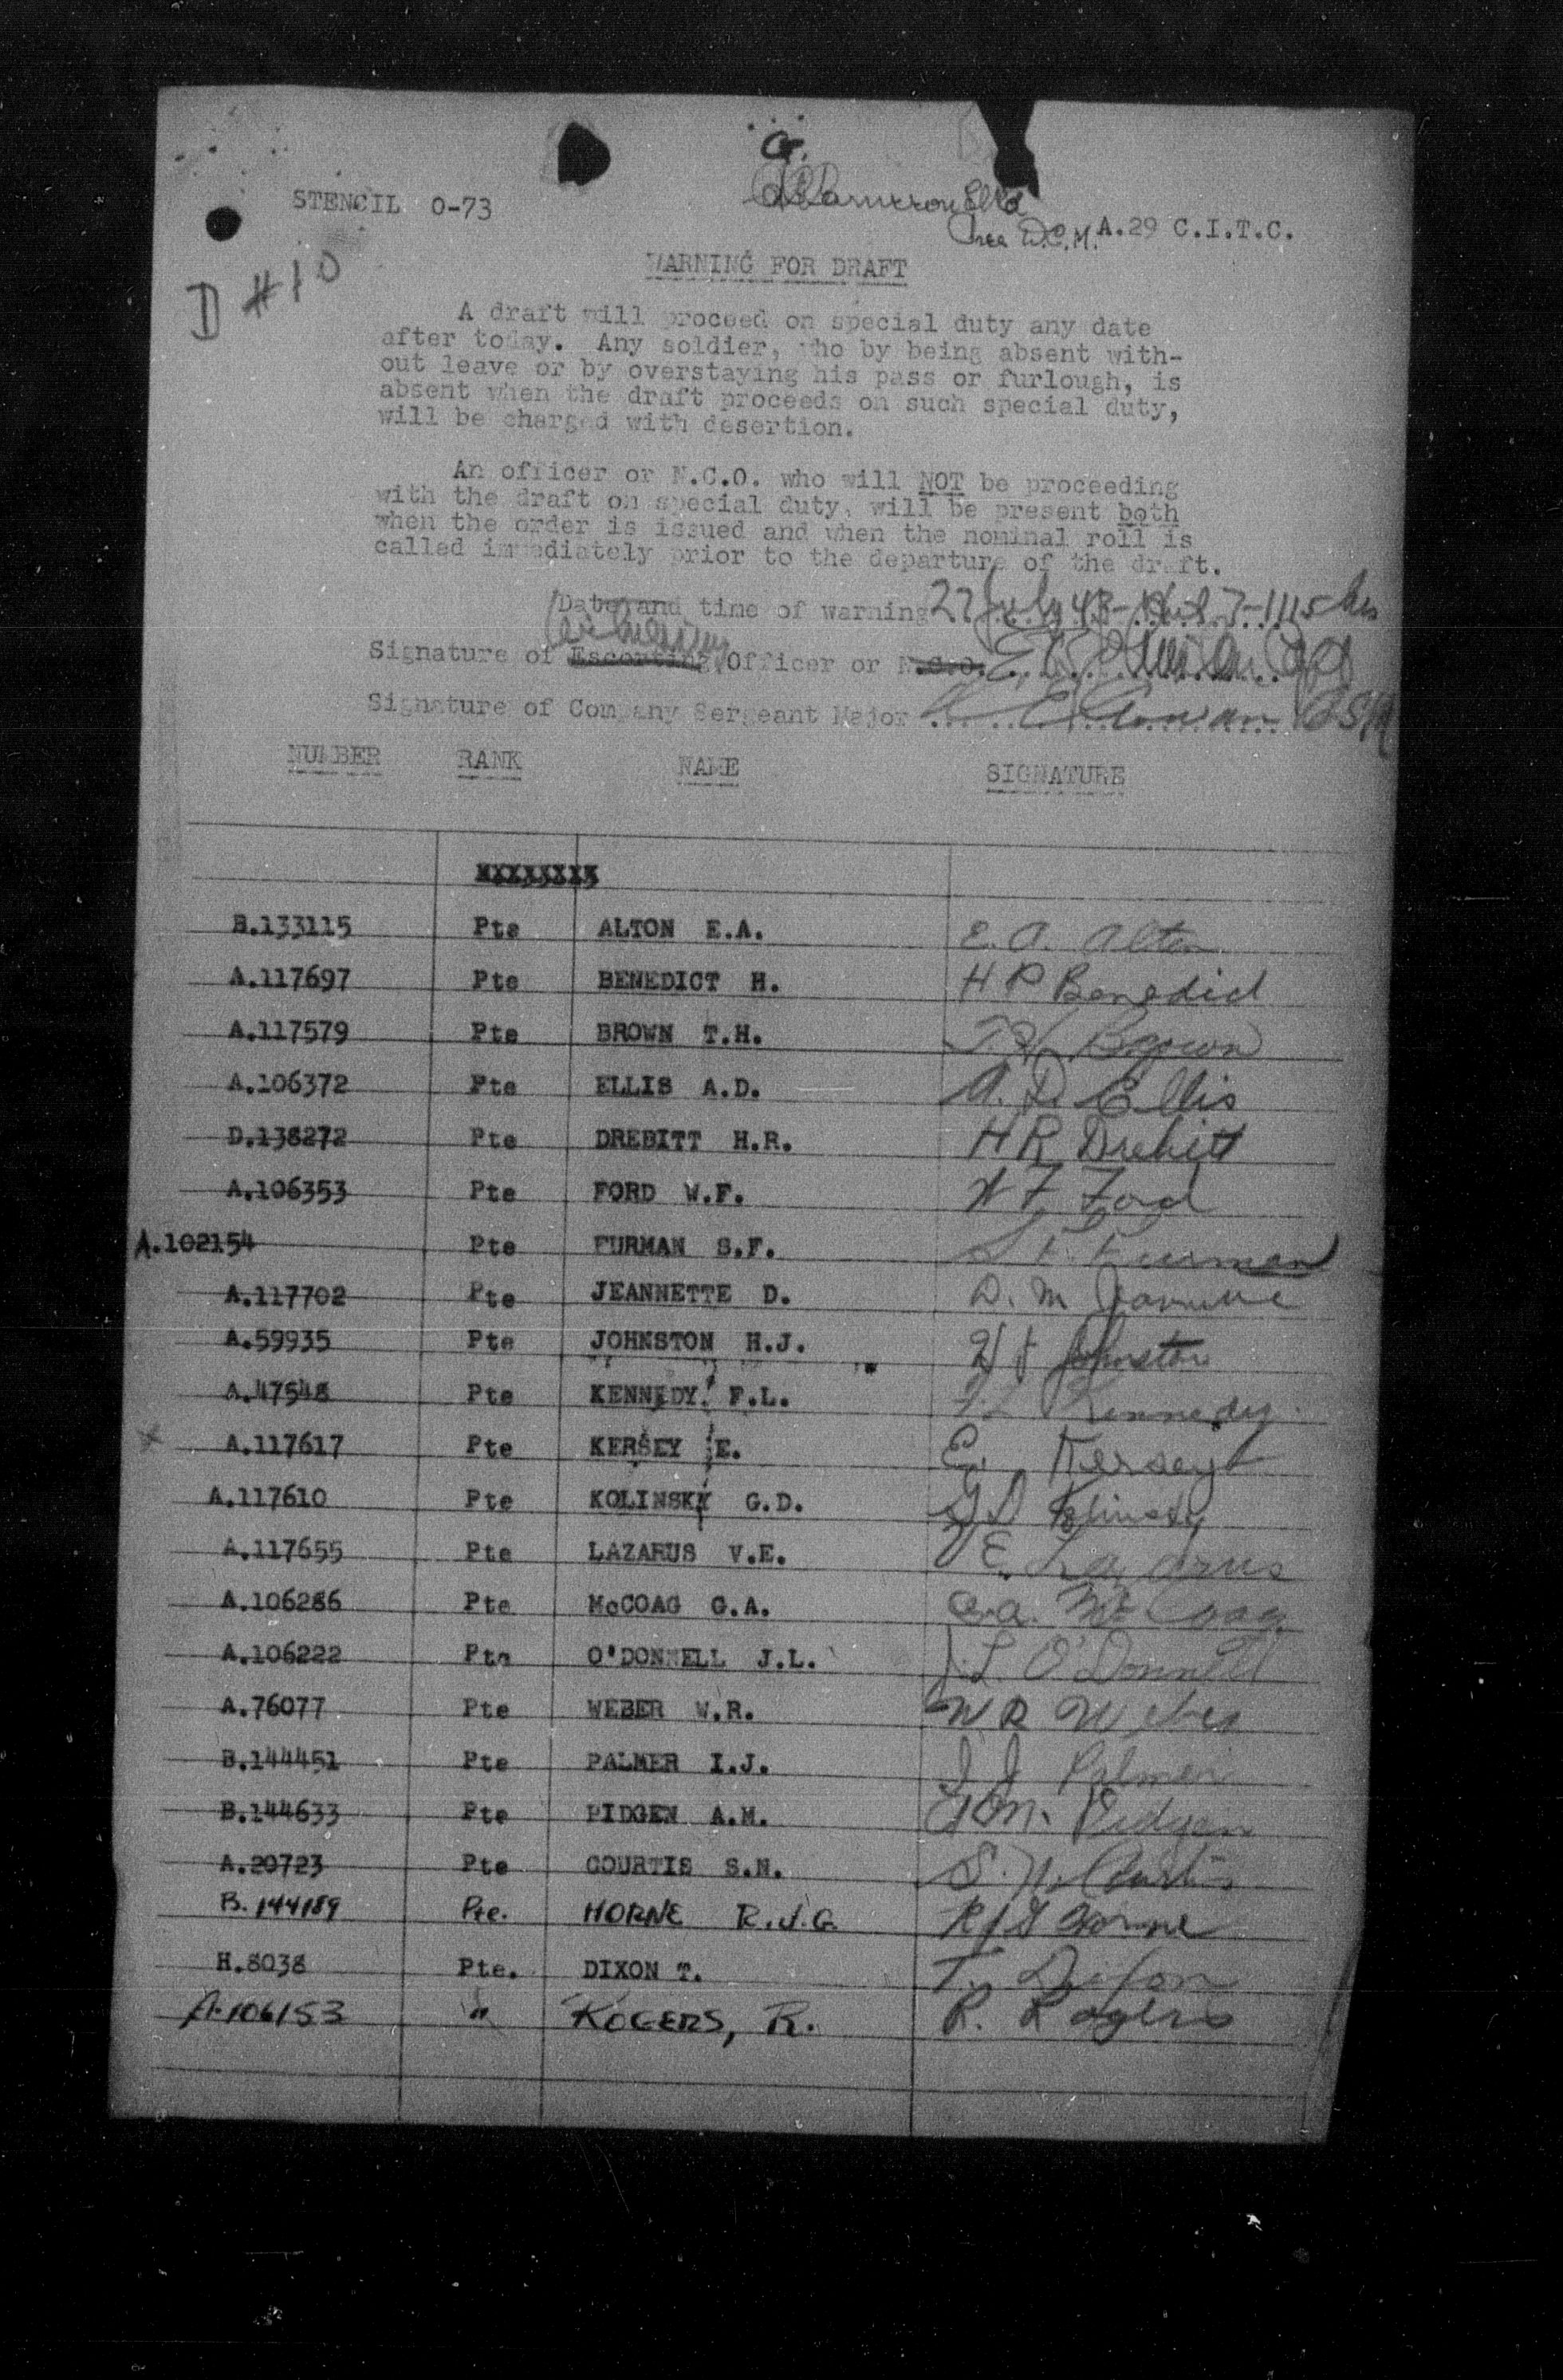 STENCIL 0-73
A.29 C.I.T.C.
D #10
WARNING FOR DRAFT
A draft will proceed on special duty any date
after today. Any soldier, who by being absent with-
out leave or by overstaying his pass or furlough, is
absent when the draft proceeds on such special duty,
will be charged with desertion.
An officer or N.C.O. who will NOT be proceeding
with the draft on special duty, will be present both
when the order is issued and when the nominal roll is
called immediately prior to the departure of the draft.
Date and time of warning 27 July 43 - Hut 7 - 1115 hrs
Signature of Escorting Officer or N.C.O.
Signature of Company Sergeant Major CSM
NUMBER RANK NAME SIGNATURE
B.133115 Pte ALTON E.A. E. A. Alton
A.117697 Pte BENEDICT H. H P Benedict
A.117579 Pte BROWN T.H. T. H. Brown
A.106372 Pte ELLIS A.D. A. D. Ellis
D.138272 Pte DREBITT H.R. H R Drebitt
A.106353 Pte FORD W.F. W F Ford
A.102154 Pte FURMAN S.F. S. F. Furman
A.117702 Pte JEANNETTE D. D. M Jeannette
A.59935 Pte JOHNSTON H.J. H J Johnston
A.47548 Pte KENNEDY F.L. F L Kennedy
A.117617 Pte KERSEY E. E. Kersey
A.117610 Pte KOLINSKY G.D. G D Kolinsky
A.117655 Pte LAZARUS V.E. V E. Lazarus
A.106286 Pte McCOAG G.A. G. A. McCoag
A.106222 Pte O'DONNELL J.L. J. L O'Donnell
A.76077 Pte WEBER W.R. W R Weber
B.144451 Pte PALMER I.J. I J Palmer
B.144633 Pte PIDGEN A.M. A M. Pidgen
A.20723 Pte COURTIS S.N. S. N. Courtis
B.144189 Pte. HORNE R.J.G. R J G Horne
H.8038 Pte. DIXON T. T. Dixon
A.106153 " ROGERS, R. R. Rogers